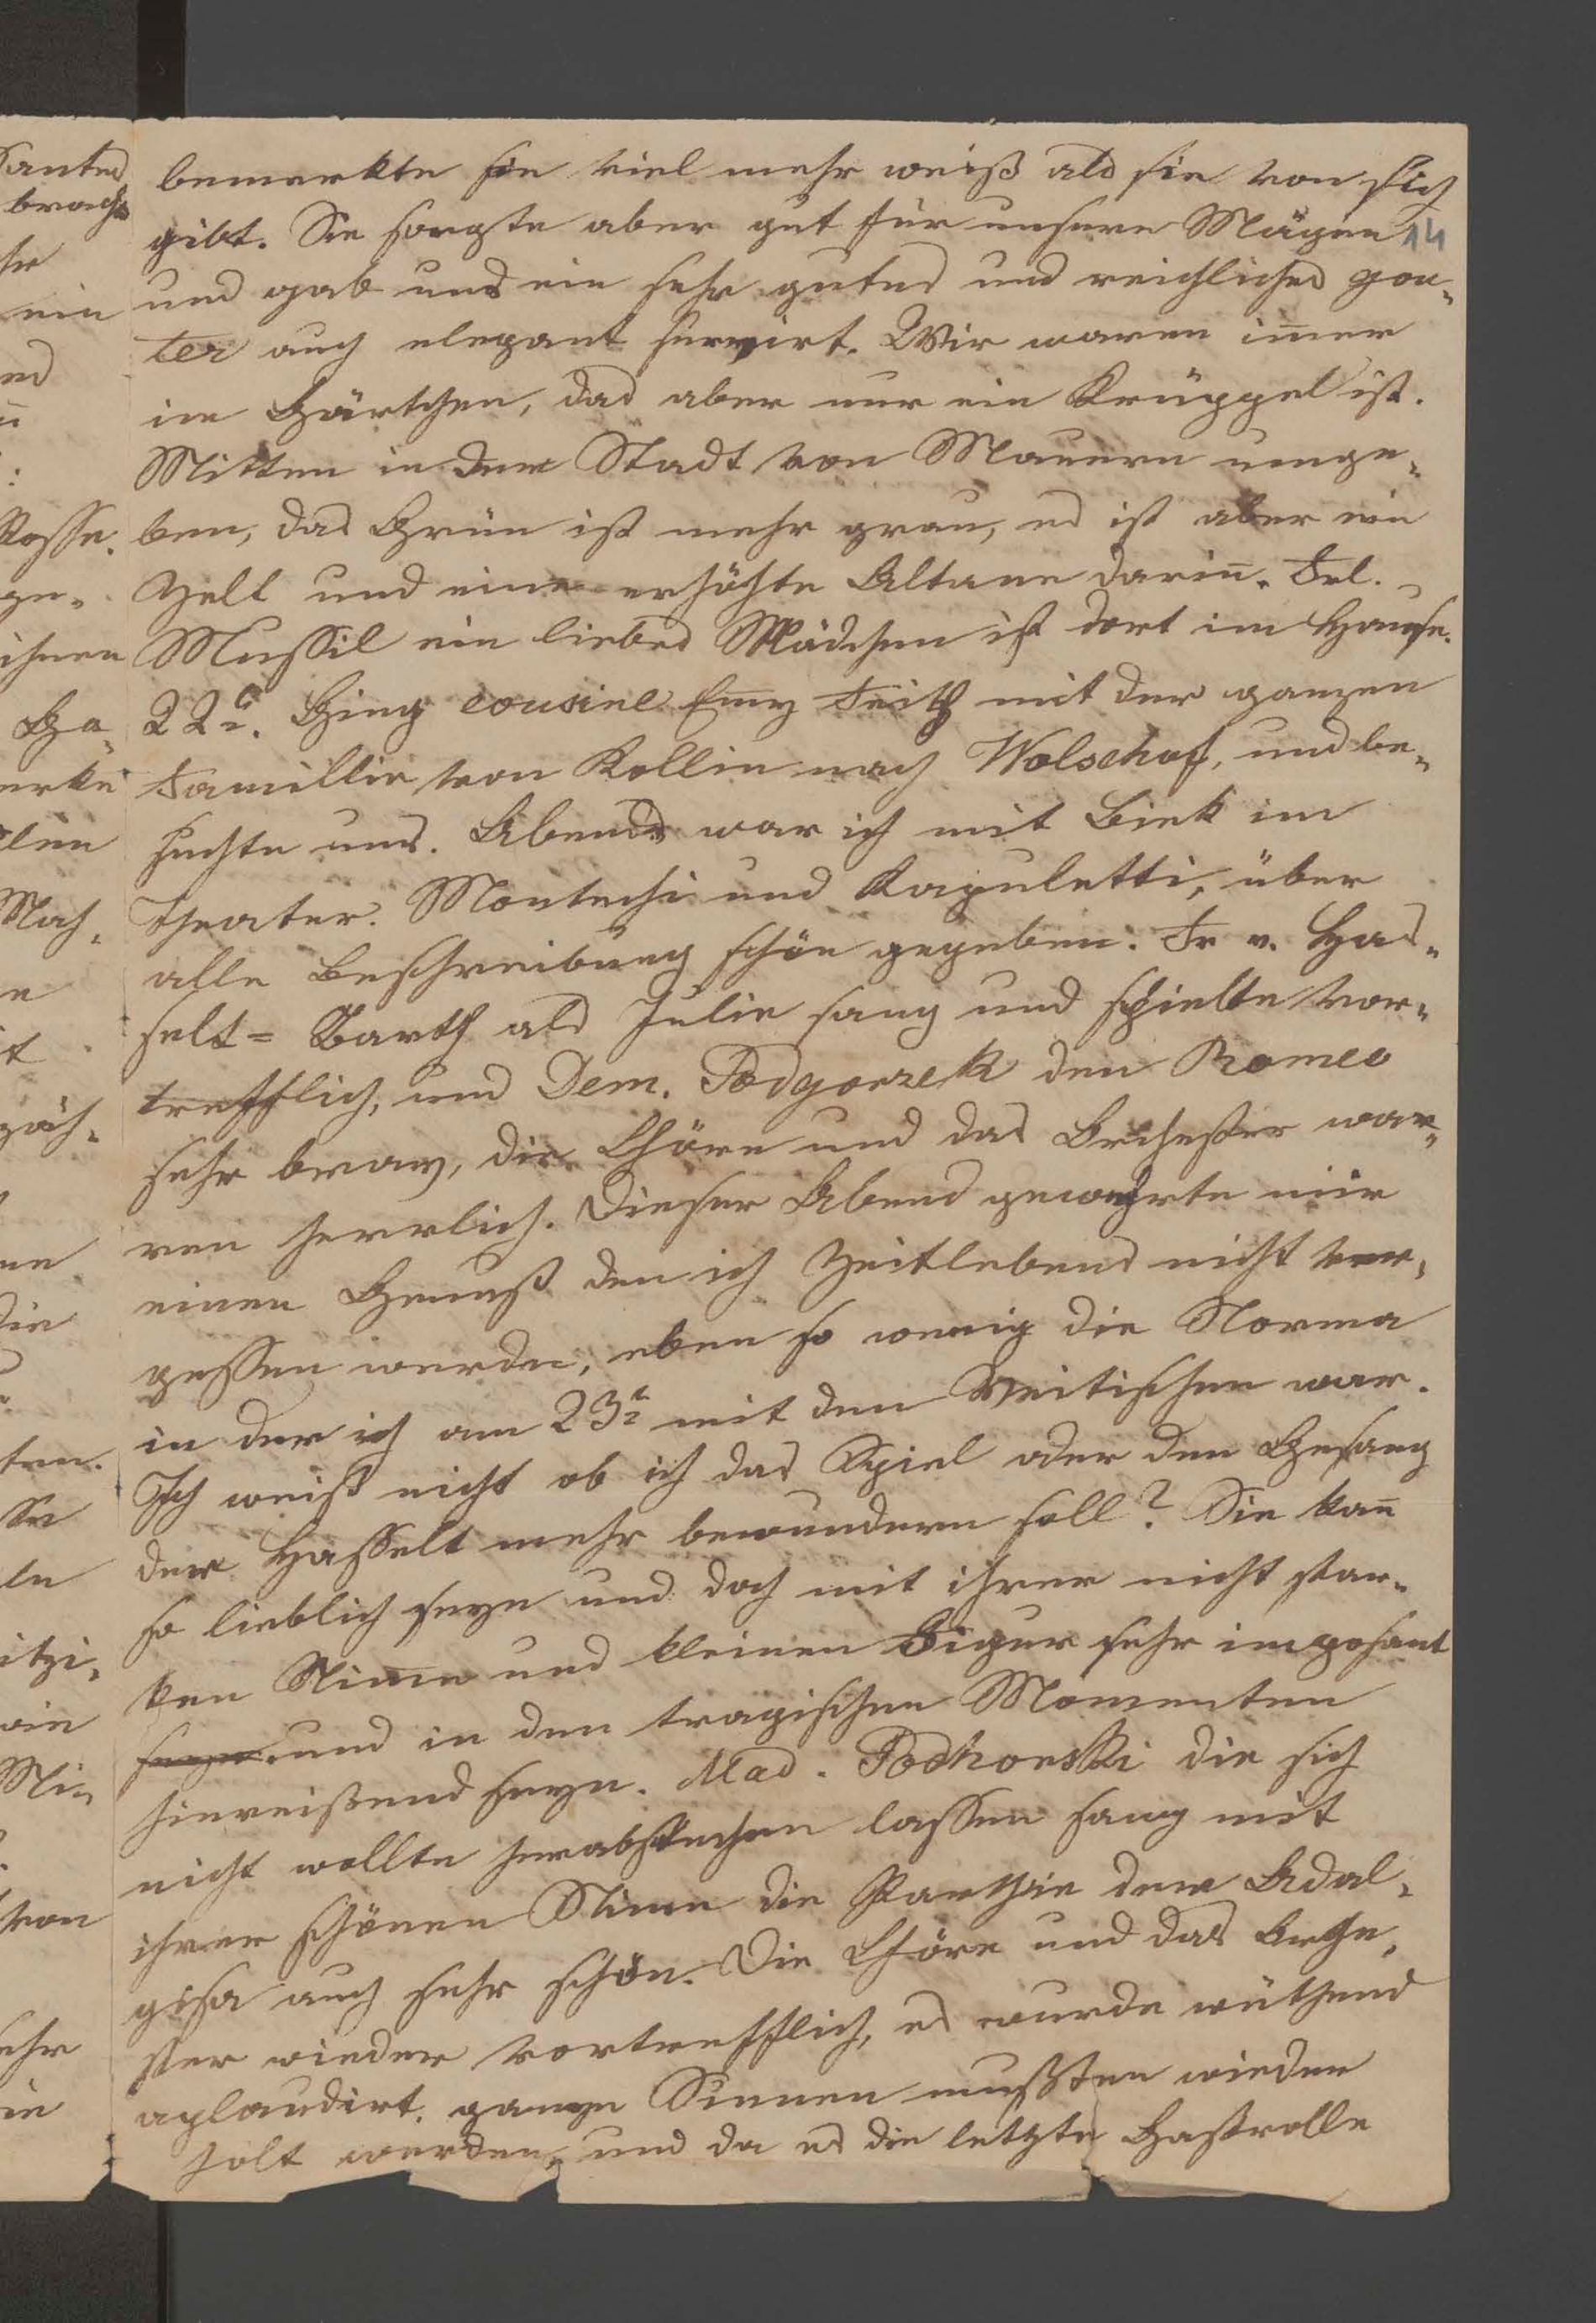 bemerkte sie viel mehr weiß als sie von sich
gibt. Sie sorgte aber gut für unsere Mägen 14
und gab uns ein sehr gutes und reichliches gou-
ter auch elegant servirt. Wir waren im̅er
im Gärtchen, das aber nur ein Krüppel ist.
Mitten in der Stadt von Mauern umge-
ben, das Grün ist mehr grau, es ist aber ein
Zelt und eine erhöhte Altane darin̅. Frl.
Mussil ein liebes Mädchen ist dort im Hause.
22t. Ging cousine Em̅y Veith mit der ganzen
Familie von Kollin nach Wolschof, und be-
suchte uns. Abends war ich mit Biek im
Theater. Montechi und Kapuletti, über
alle Beschreibung schön gegeben. Fr v. Has-
selt=Barth als Julie sang und spielte vor-
trefflich, und Dem. Podgorzek den Romeo
sehr brav, die Chöre und das Orchester war-
ren herrlich. Dieser Abend gewährte mir
einen Genuß den ich Zeitlebens nicht ver-
gessen werde, eben so wenig die Norma
in der ich am 23t mit den Veitischen war.
Ich weiß nicht ob ich das Spiel oder den Gesang
der Hasselt mehr bewundern soll? Sie kan̅
so lieblich seyn und doch mit ihrer nicht star-
ken Stim̅e und kleinen Figur sehr imposant
seyn und in den tragischen Momenten
hinreißend seyn. Mad. Podhorski die sich
nicht wollte herabstechen lassen sang mit
ihrer schönen Stim̅e die Parthie der Adal-
gisa auch sehr schön. Die Chöre und das Orche-
ster wieder vortrefflich, es wurde wüthend
aplaudirt, ganze Sce̅nen mußten wieder
holt werden, und da es die letzte Gastrolle